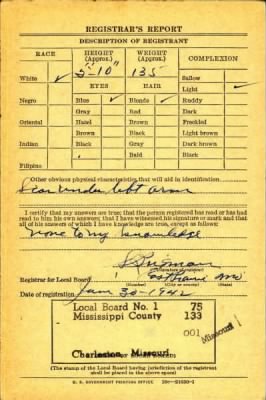 REGISTRAR'S REPORT
DESCRIPTION OF REGISTRANT
RACE HEIGHT (Approx.) WEIGHT (Approx.) COMPLEXION
5-10" 135
White ✓ Sallow
EYES HAIR Light ✓
Negro Blue ✓ Blonde ✓ Ruddy
Gray Red Dark
Oriental Hazel Brown Freckled
Brown Black Light brown
Indian Black Gray Dark brown
Bald Black
Filipino
Other obvious physical characteristics that will aid in identification
Scar under left arm
I certify that my answers are true; that the person registered has read or has had
read to him his own answers; that I have witnessed his signature or mark and that
all of his answers of which I have knowledge are true, except as follows:
None to my knowledge
Registrar for Local Board Mo
Date of registration Jan 30-1942
Local Board No. 1 75
Mississippi County 133
001
Missouri 1
Charleston, Missouri
(The stamp of the Local Board having jurisdiction of the registrant
shall be placed in the above space)
U. S. GOVERNMENT PRINTING OFFICE 16—21630-1